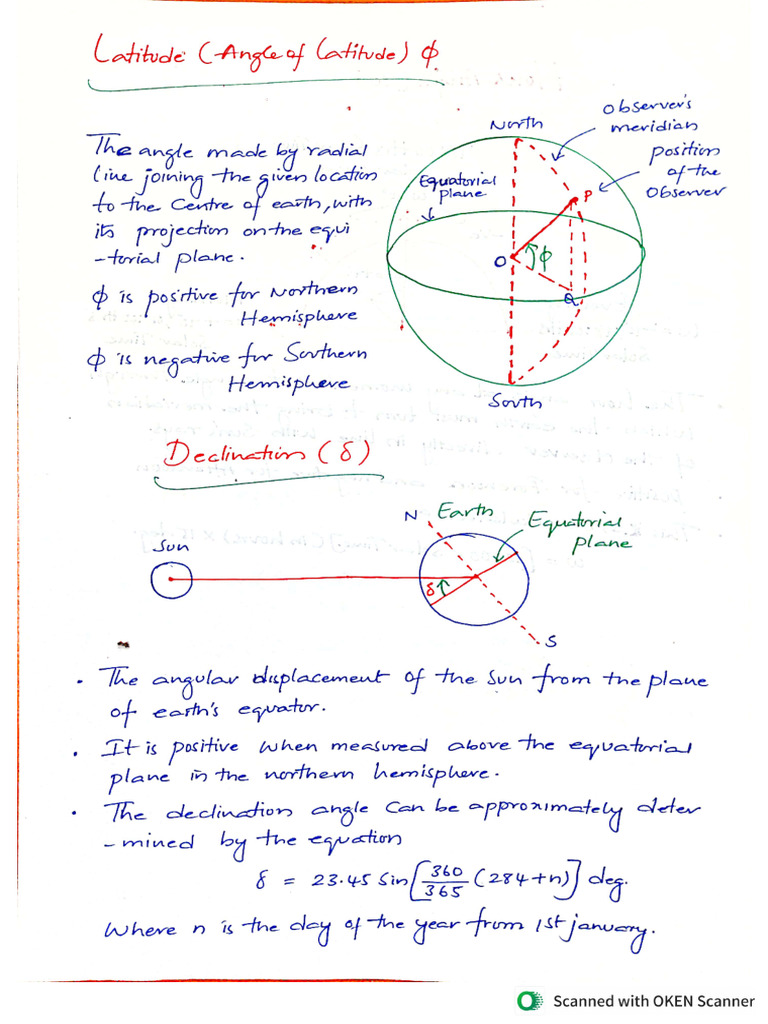 Latitude (Angle of Latitude) ϕ
The angle made by radial
line joining the given location
to the centre of earth, with
its projection on the equi
-torial plane.
ϕ is positive for Northern
Hemisphere
ϕ is negative for Southern
Hemisphere
North
observer's
meridian
position
of the
observer
Equatorial
plane
P
O
ϕ
Q
South
Declination (δ)
Sun
N
Earth
Equatorial
plane
δ
S
• The angular displacement of the sun from the plane
of earth's equator.
• It is positive when measured above the equatorial
plane in the northern hemisphere.
• The declination angle can be approximately deter
-mined by the equation
δ = 23.45 sin[360/365 (284+n)] deg.
Where n is the day of the year from 1st january.
Scanned with OKEN Scanner